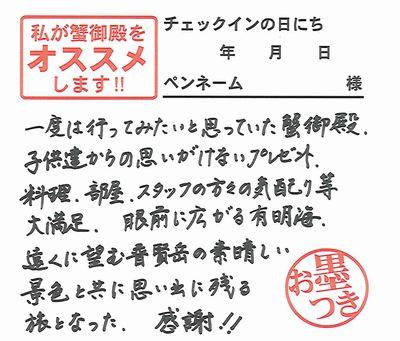 私が蟹御殿を
オススメ
します!!
チェックインの日にち
年 月 日
ペンネーム 様
一度は行ってみたいと思っていた蟹御殿.
子供達からの思いがけないプレゼント.
料理.部屋.スタッフの方々の気配り等
大満足. 眼前に広がる有明海.
遠くに望む普賢岳の素晴しい
景色と共に思い出に残る
旅となった. 感謝!!
お墨つき